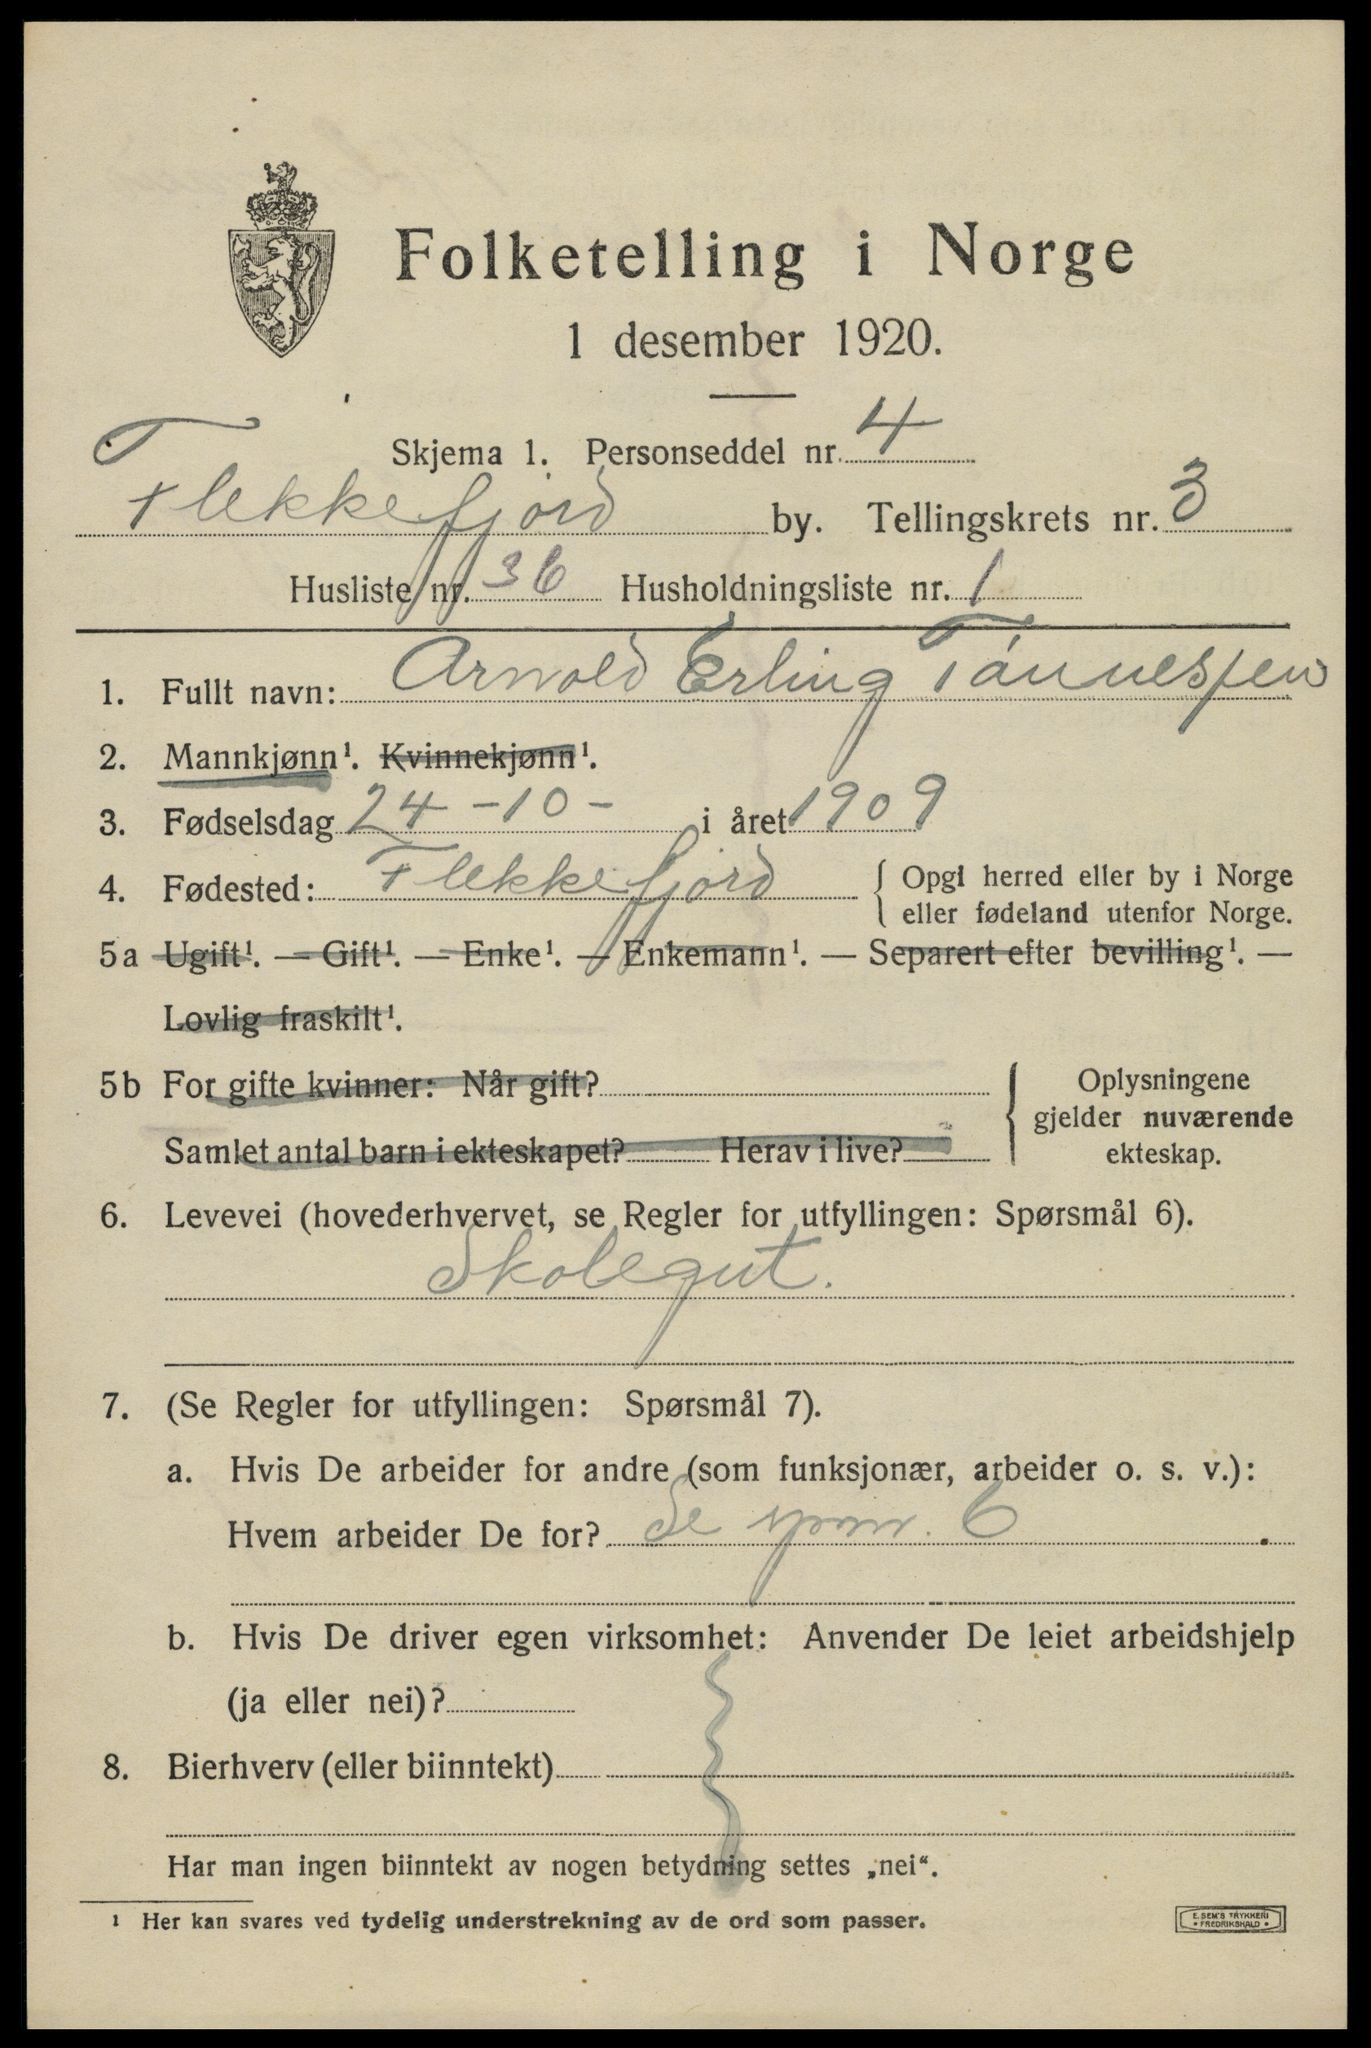 Folketelling i Norge
1 desember 1920.
Skjema 1. Personseddel nr. 4
Flekkefjord by. Tellingskrets nr. 3
Husliste nr. 36 Husholdningsliste nr. 1
1. Fullt navn: Arnold Erling Tónnessen
2. Mannkjønn¹. Kvinnekjønn¹.
3. Fødselsdag 24 - 10 - i året 1909
4. Fødested: Flekkefjord { Opgi herred eller by i Norge
eller fødeland utenfor Norge.
5a Ugift¹. — Gift¹. — Enke¹. — Enkemann¹. — Separert efter bevilling¹. —
Lovlig fraskilt¹.
5b For gifte kvinner: Når gift? { Oplysningene
gjelder nuværende
Samlet antal barn i ekteskapet? Herav i live? ekteskap.
6. Levevei (hovederhvervet, se Regler for utfyllingen: Spørsmål 6).
Skolegut.
7. (Se Regler for utfyllingen: Spørsmål 7).
a. Hvis De arbeider for andre (som funksjonær, arbeider o. s. v.):
Hvem arbeider De for? Se 6
b. Hvis De driver egen virksomhet: Anvender De leiet arbeidshjelp
(ja eller nei)?
8. Bierhverv (eller biinntekt)
Har man ingen biinntekt av nogen betydning settes „nei“.
¹ Her kan svares ved tydelig understrekning av de ord som passer.
E. SEM'S TRYKKERI
• FREDRIKSHALD •